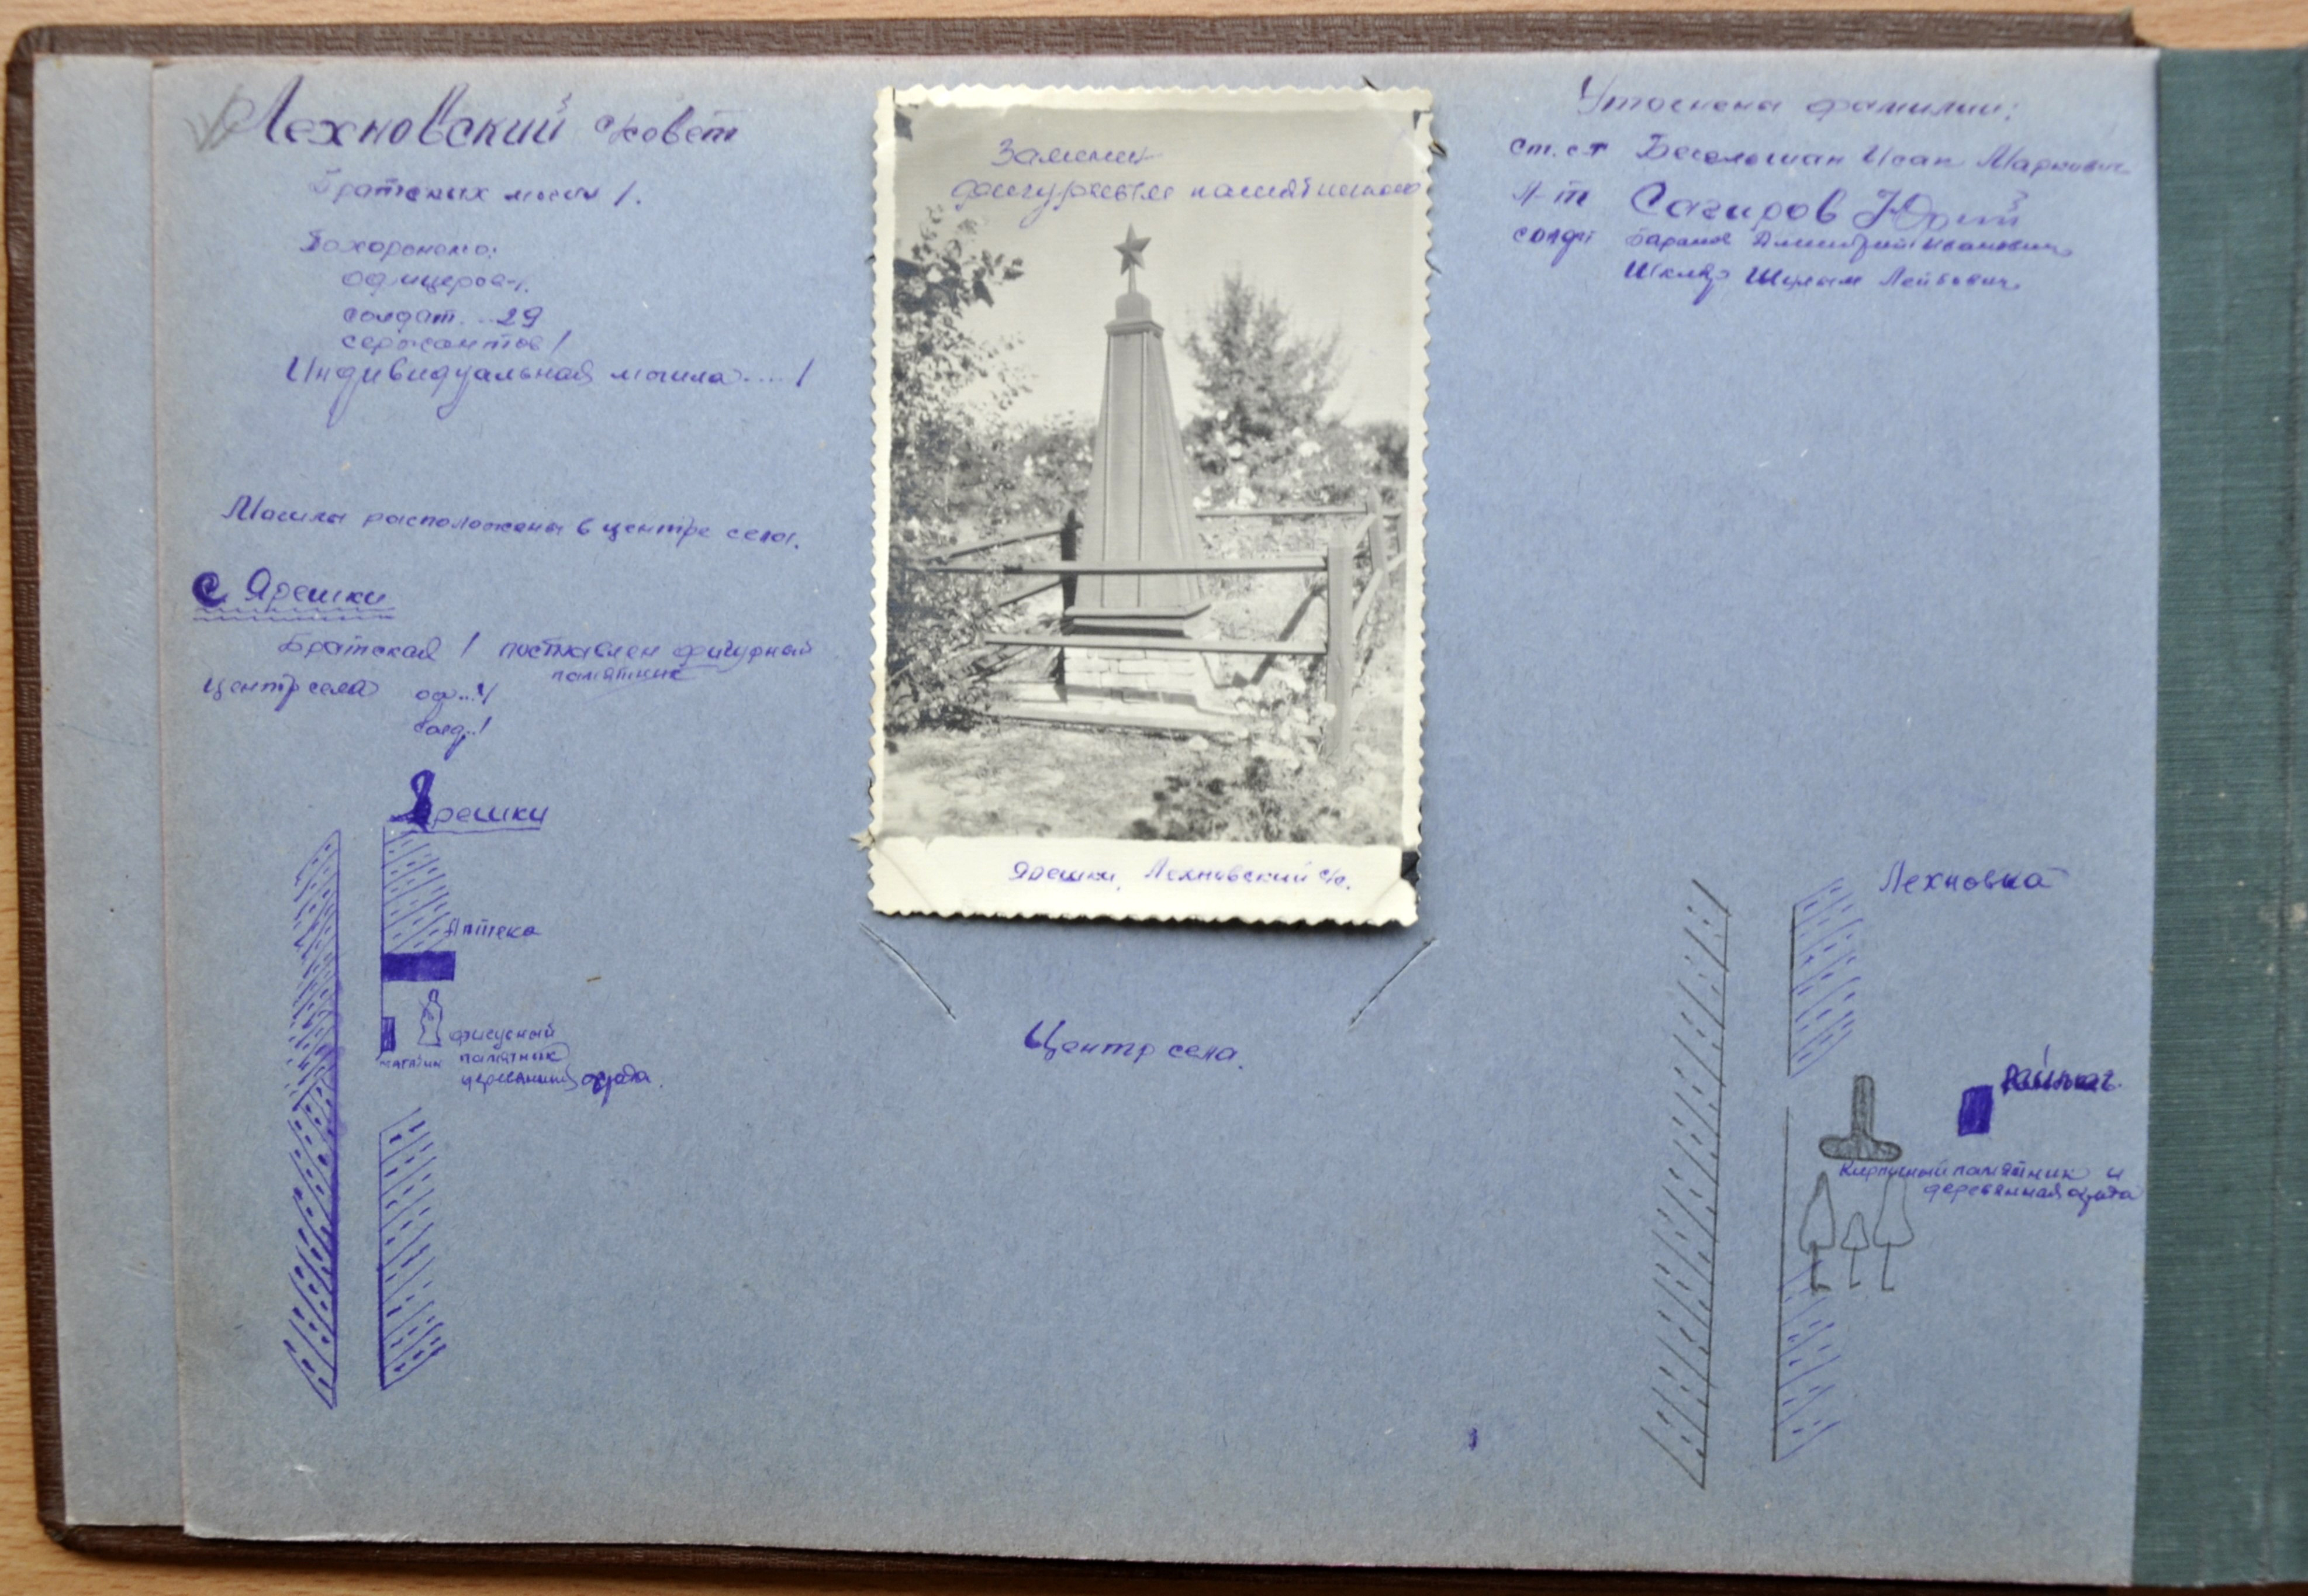 Лехновский с/совет
Братских могил 1.
Похоронено:
офицеров-1.
солдат...29
сержантов 1
Индивидуальная могила....1
Могилы расположены в центре села.
с Ярешки
Братская 1 поставлен фигурный
памятник
центр села оф...4
солд..1
Ярешки
Аптека
магазин
фигурный
памятник
ограда.
Заменен
фигурным памятником
Ярешки, Лехновский с/с.
Центр села.
Уточнена фамилии:
ст. с-т Исак Маркович
л-т Сагиров Юрий
солдат Баранов Дмитрий Иванович
Шкляр Шулым Лейбович.
Лехновка
Кирпичный памятник и
деревянная ограда